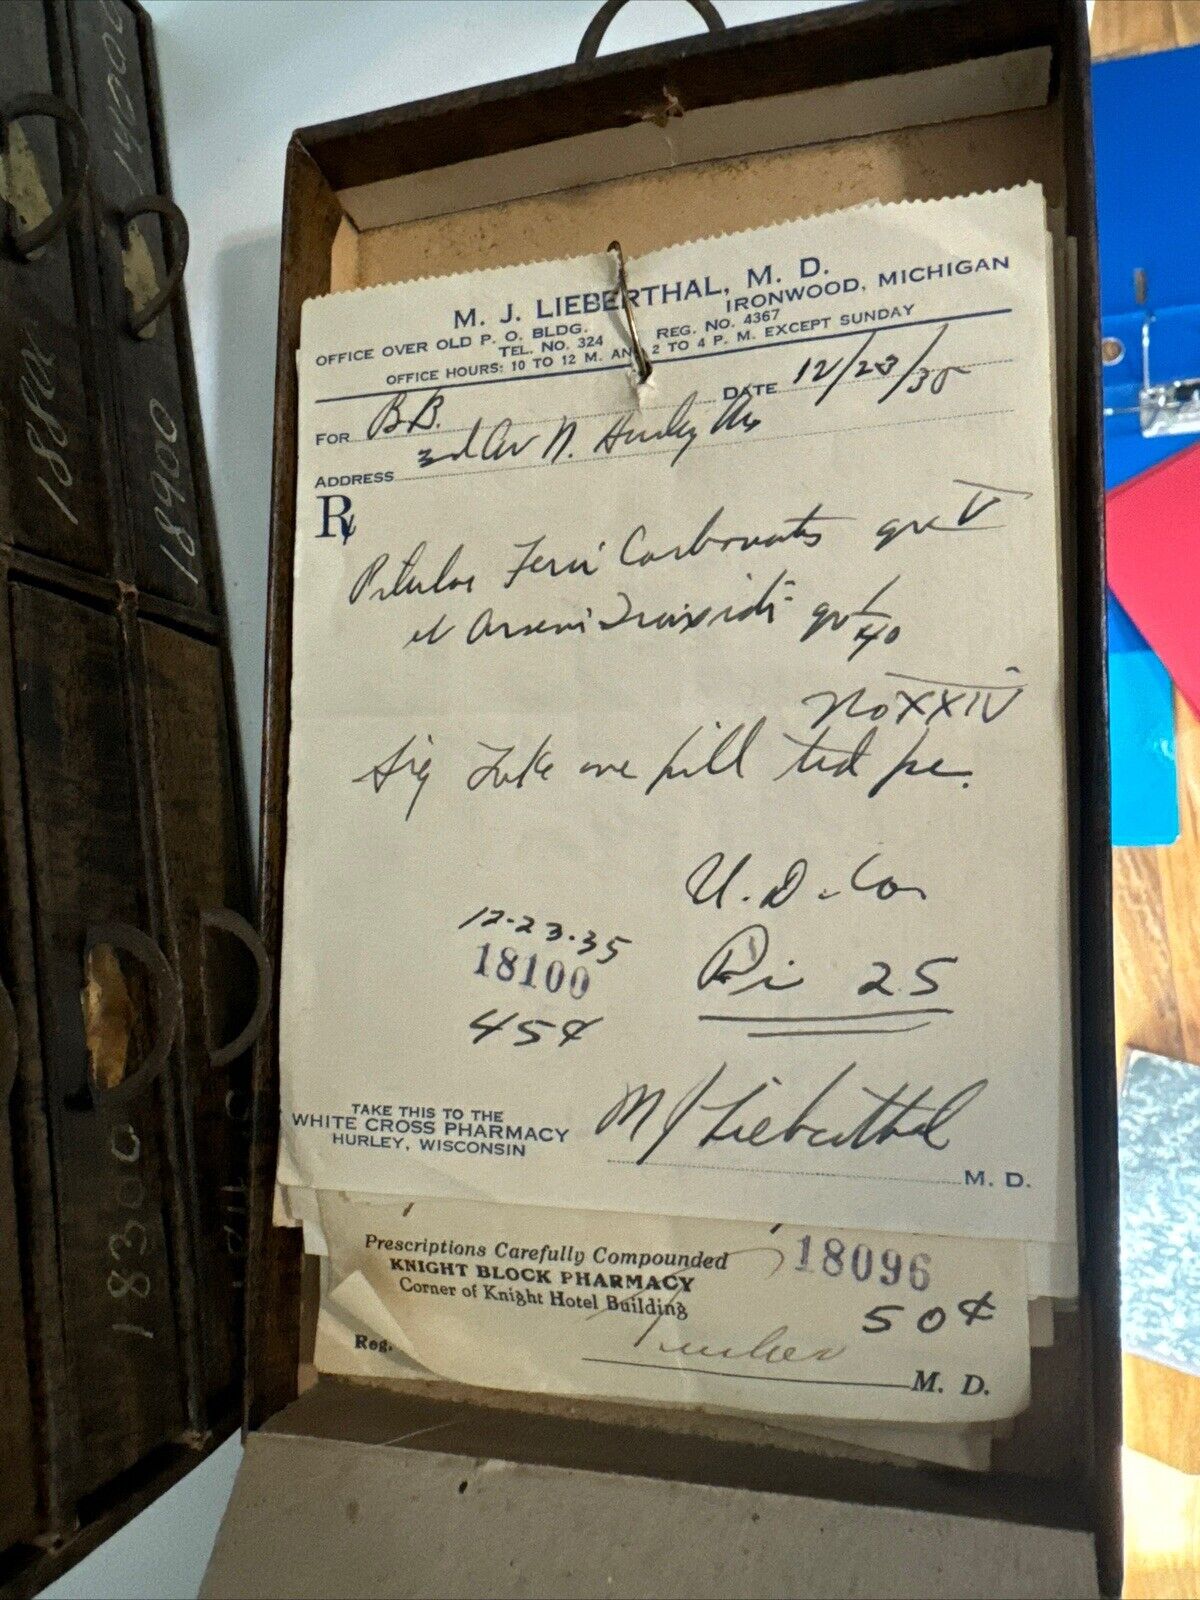 14000
18800
18900
18300
M. J. LIEBERTHAL, M. D.
IRONWOOD, MICHIGAN
OFFICE OVER OLD P. O. BLDG.
REG. NO. 4367
TEL. NO. 324
OFFICE HOURS: 10 TO 12 M. AND 2 TO 4 P. M. EXCEPT SUNDAY
FOR B.B. DATE 12/23/35
ADDRESS 3rd Av N. Hurley Wis
Rx
Pilulae Ferri Carbonatis grs V
et Arseni Trioxidi gr 1/40
No XXIV
Sig Take one pill tid pc.
U.D. Co
12-23-35
18100
45¢
25
M J Lieberthal
M. D.
TAKE THIS TO THE
WHITE CROSS PHARMACY
HURLEY, WISCONSIN
Prescriptions Carefully Compounded
KNIGHT BLOCK PHARMACY
Corner of Knight Hotel Building
18096
50¢
Reg.
M. D.